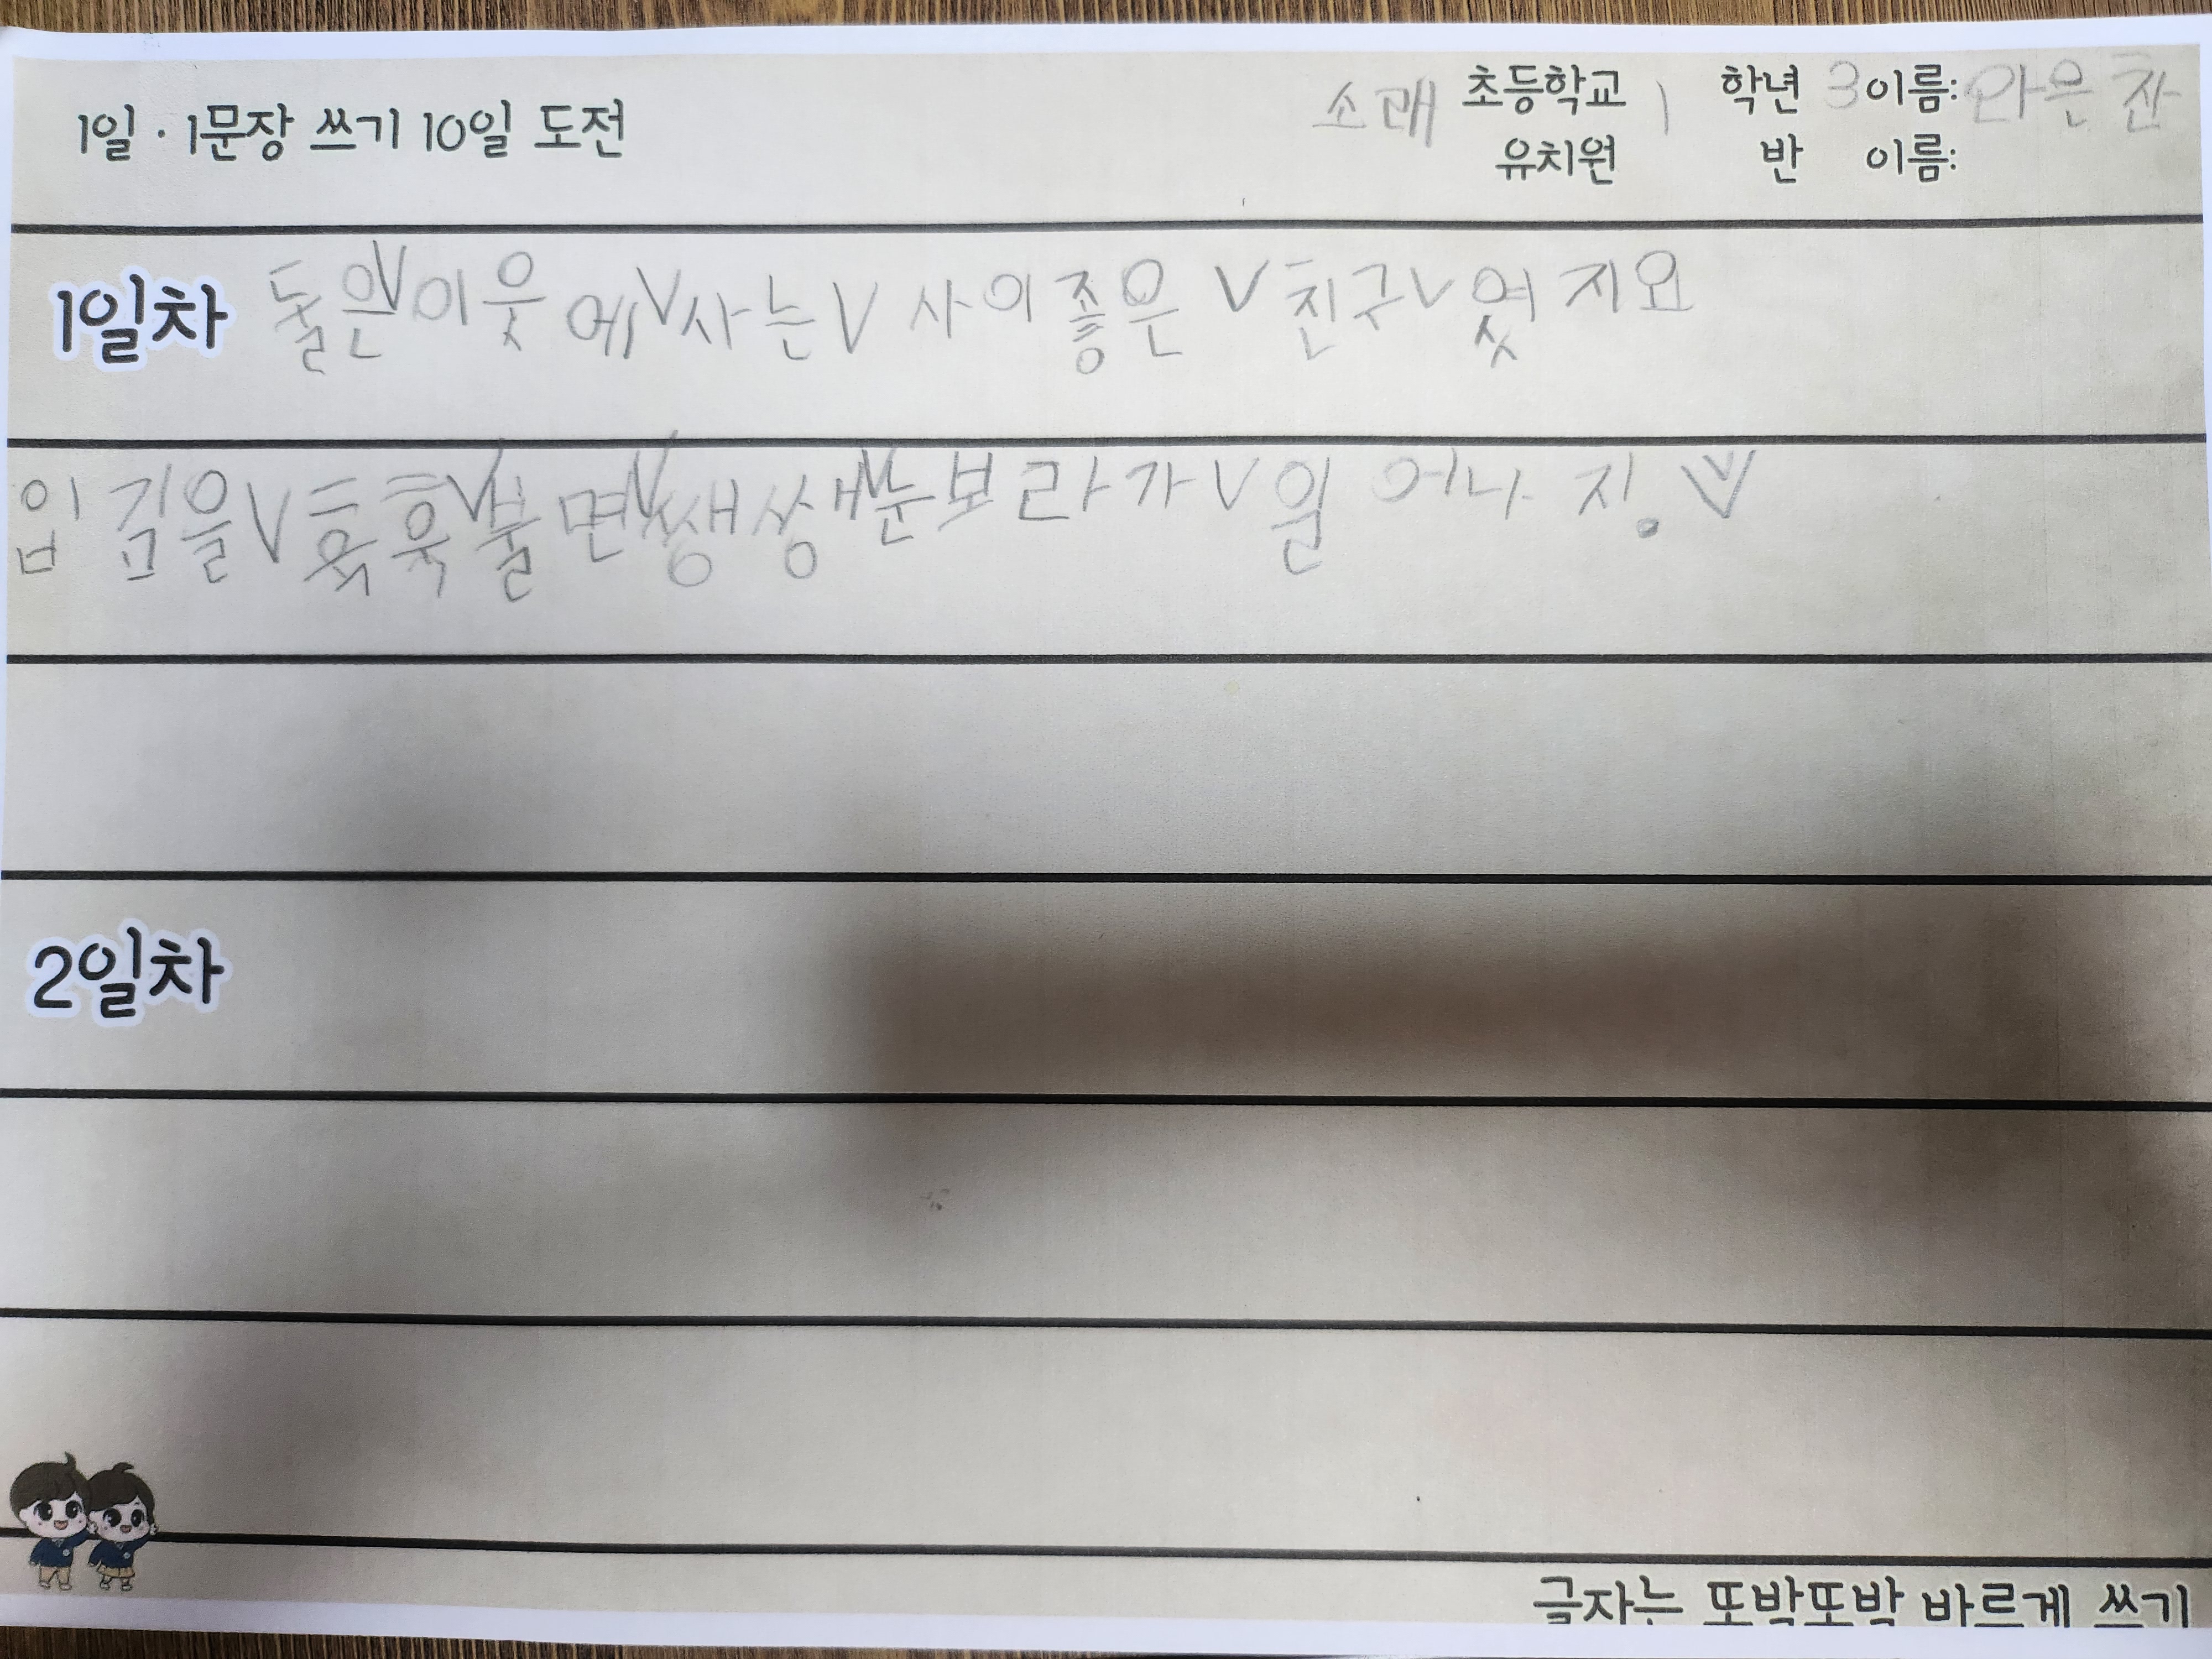 1일·1문장 쓰기 10일 도전
소래 초등학교 1 학년 3 이름: 안은찬
유치원 반 이름:
1일차 둘은V이웃에V사는V사이좋은V친구V였지요
입김을V훅훅V불면V쌩쌩V눈보라가V일어나지.V
2일차
글자는 또박또박 바르게 쓰기